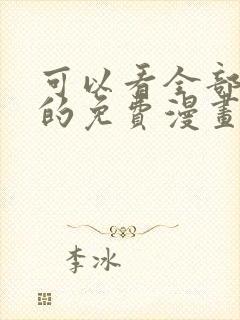 可以看全部
的免費漫畫
李冰